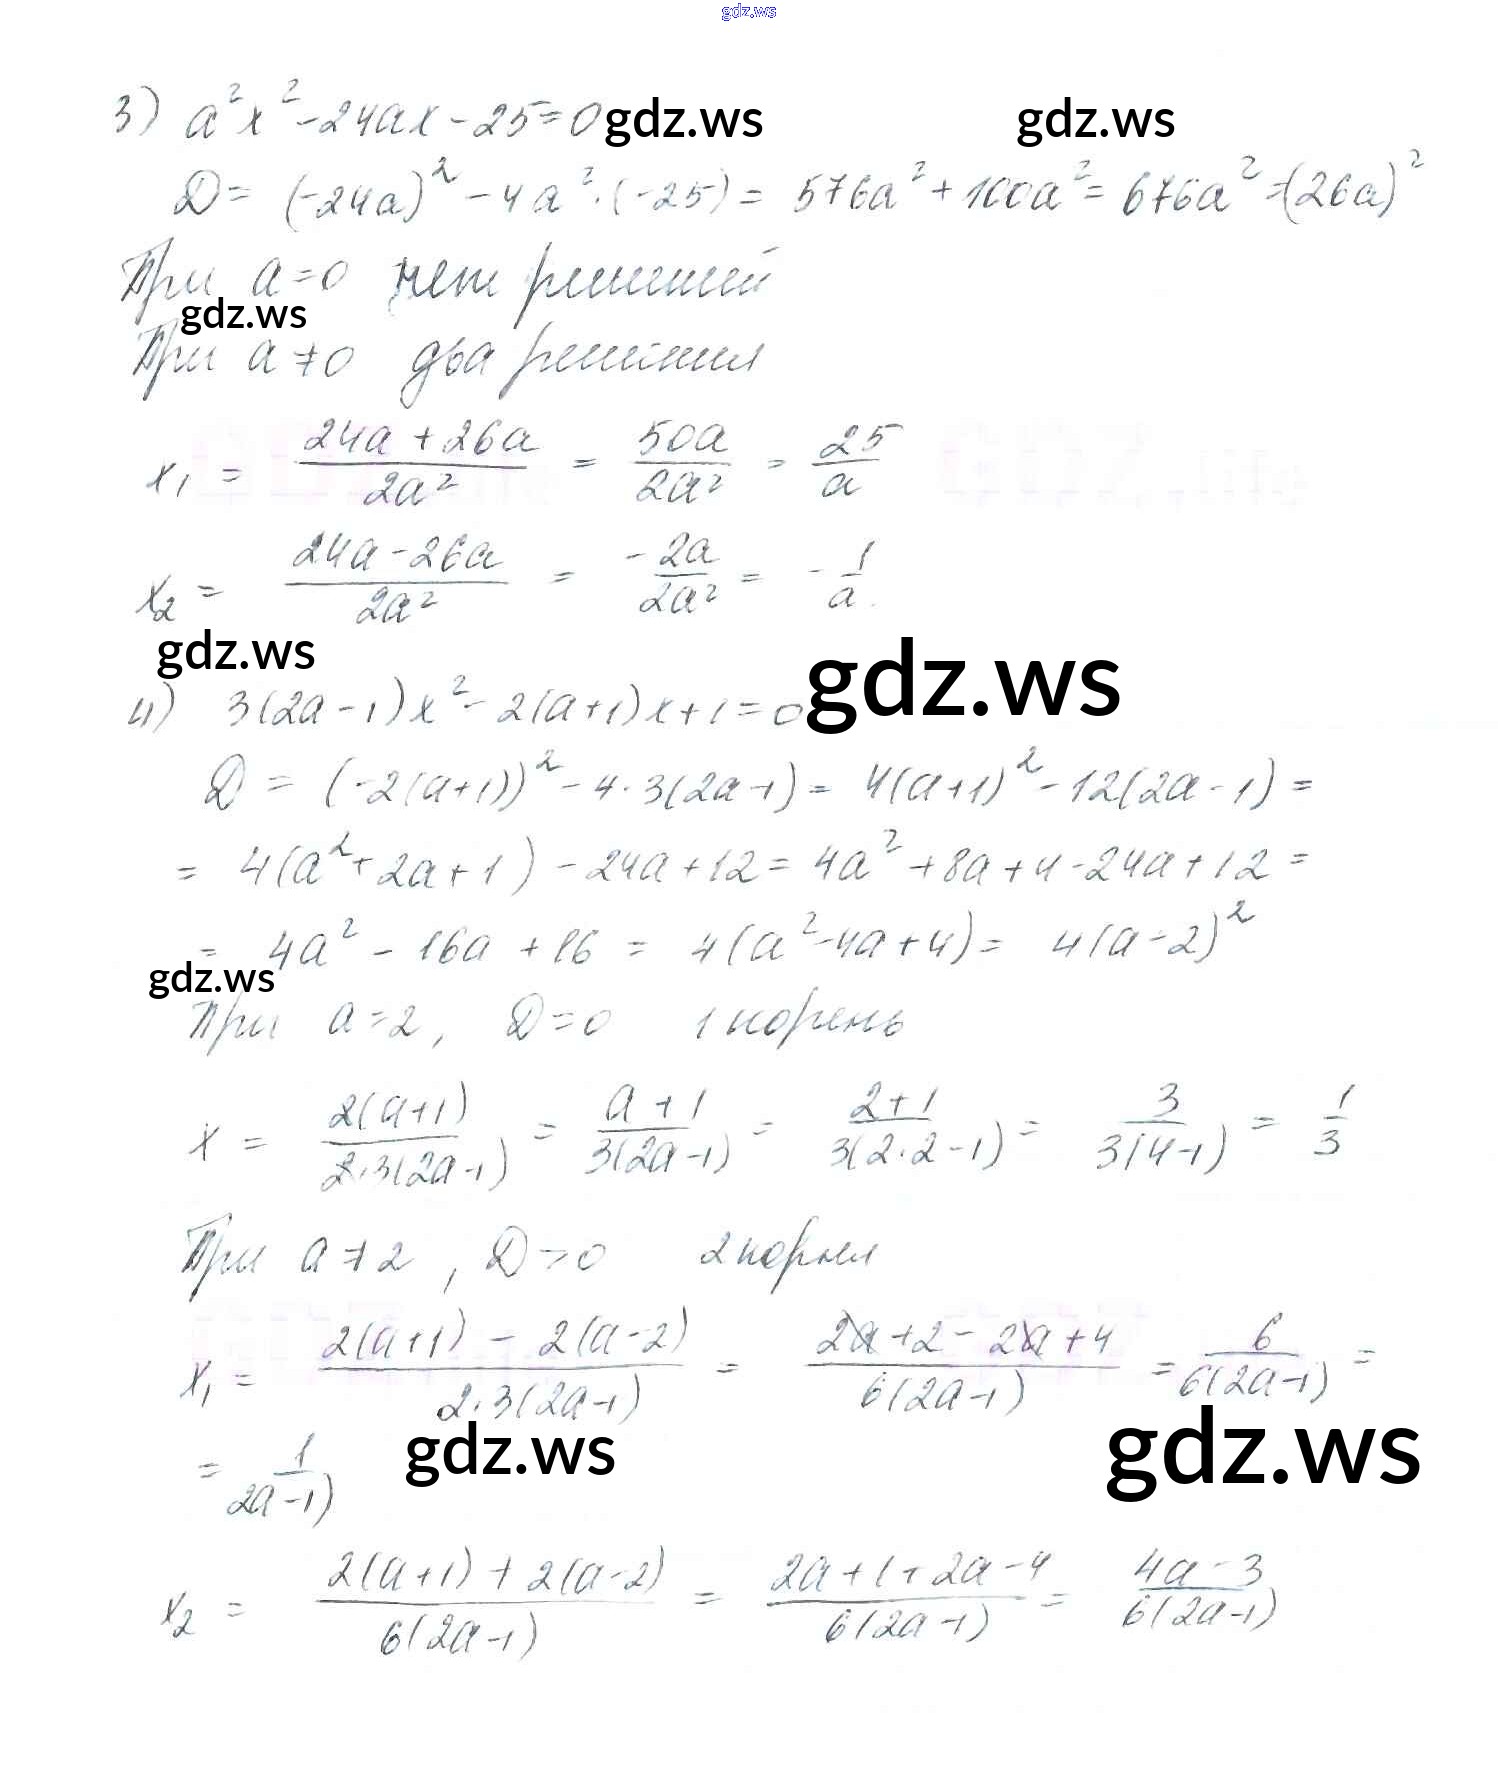 gdz.ws
3) a²x² - 24ax - 25 = 0 gdz.ws gdz.ws
D = (-24a)² - 4a² · (-25) = 576a² + 100a² = 676a² = (26a)²
При a = 0 нет решений
gdz.ws
При a ≠ 0 два решения
x₁ = (24a + 26a)/(2a²) = 50a/(2a²) = 25/a
x₂ = (24a - 26a)/(2a²) = -2a/(2a²) = -1/a.
gdz.ws gdz.ws
4) 3(2a - 1)x² - 2(a + 1)x + 1 = 0
D = (-2(a+1))² - 4 · 3(2a - 1) = 4(a+1)² - 12(2a - 1) =
= 4(a² + 2a + 1) - 24a + 12 = 4a² + 8a + 4 - 24a + 12 =
= 4a² - 16a + 16 = 4(a² - 4a + 4) = 4(a - 2)²
gdz.ws
При a = 2, D = 0 1 корень
x = 2(a+1)/(2·3(2a-1)) = (a+1)/(3(2a-1)) = (2+1)/(3(2·2-1)) = 3/(3(4-1)) = 1/3
При a ≠ 2, D > 0 2 корня
x₁ = (2(a+1) - 2(a-2))/(2·3(2a-1)) = (2a + 2 - 2a + 4)/(6(2a-1)) = 6/(6(2a-1)) =
gdz.ws gdz.ws
= 1/2a-1)
x₂ = (2(a+1) + 2(a-2))/(6(2a-1)) = (2a + 1 + 2a - 4)/(6(2a-1)) = (4a - 3)/(6(2a-1))